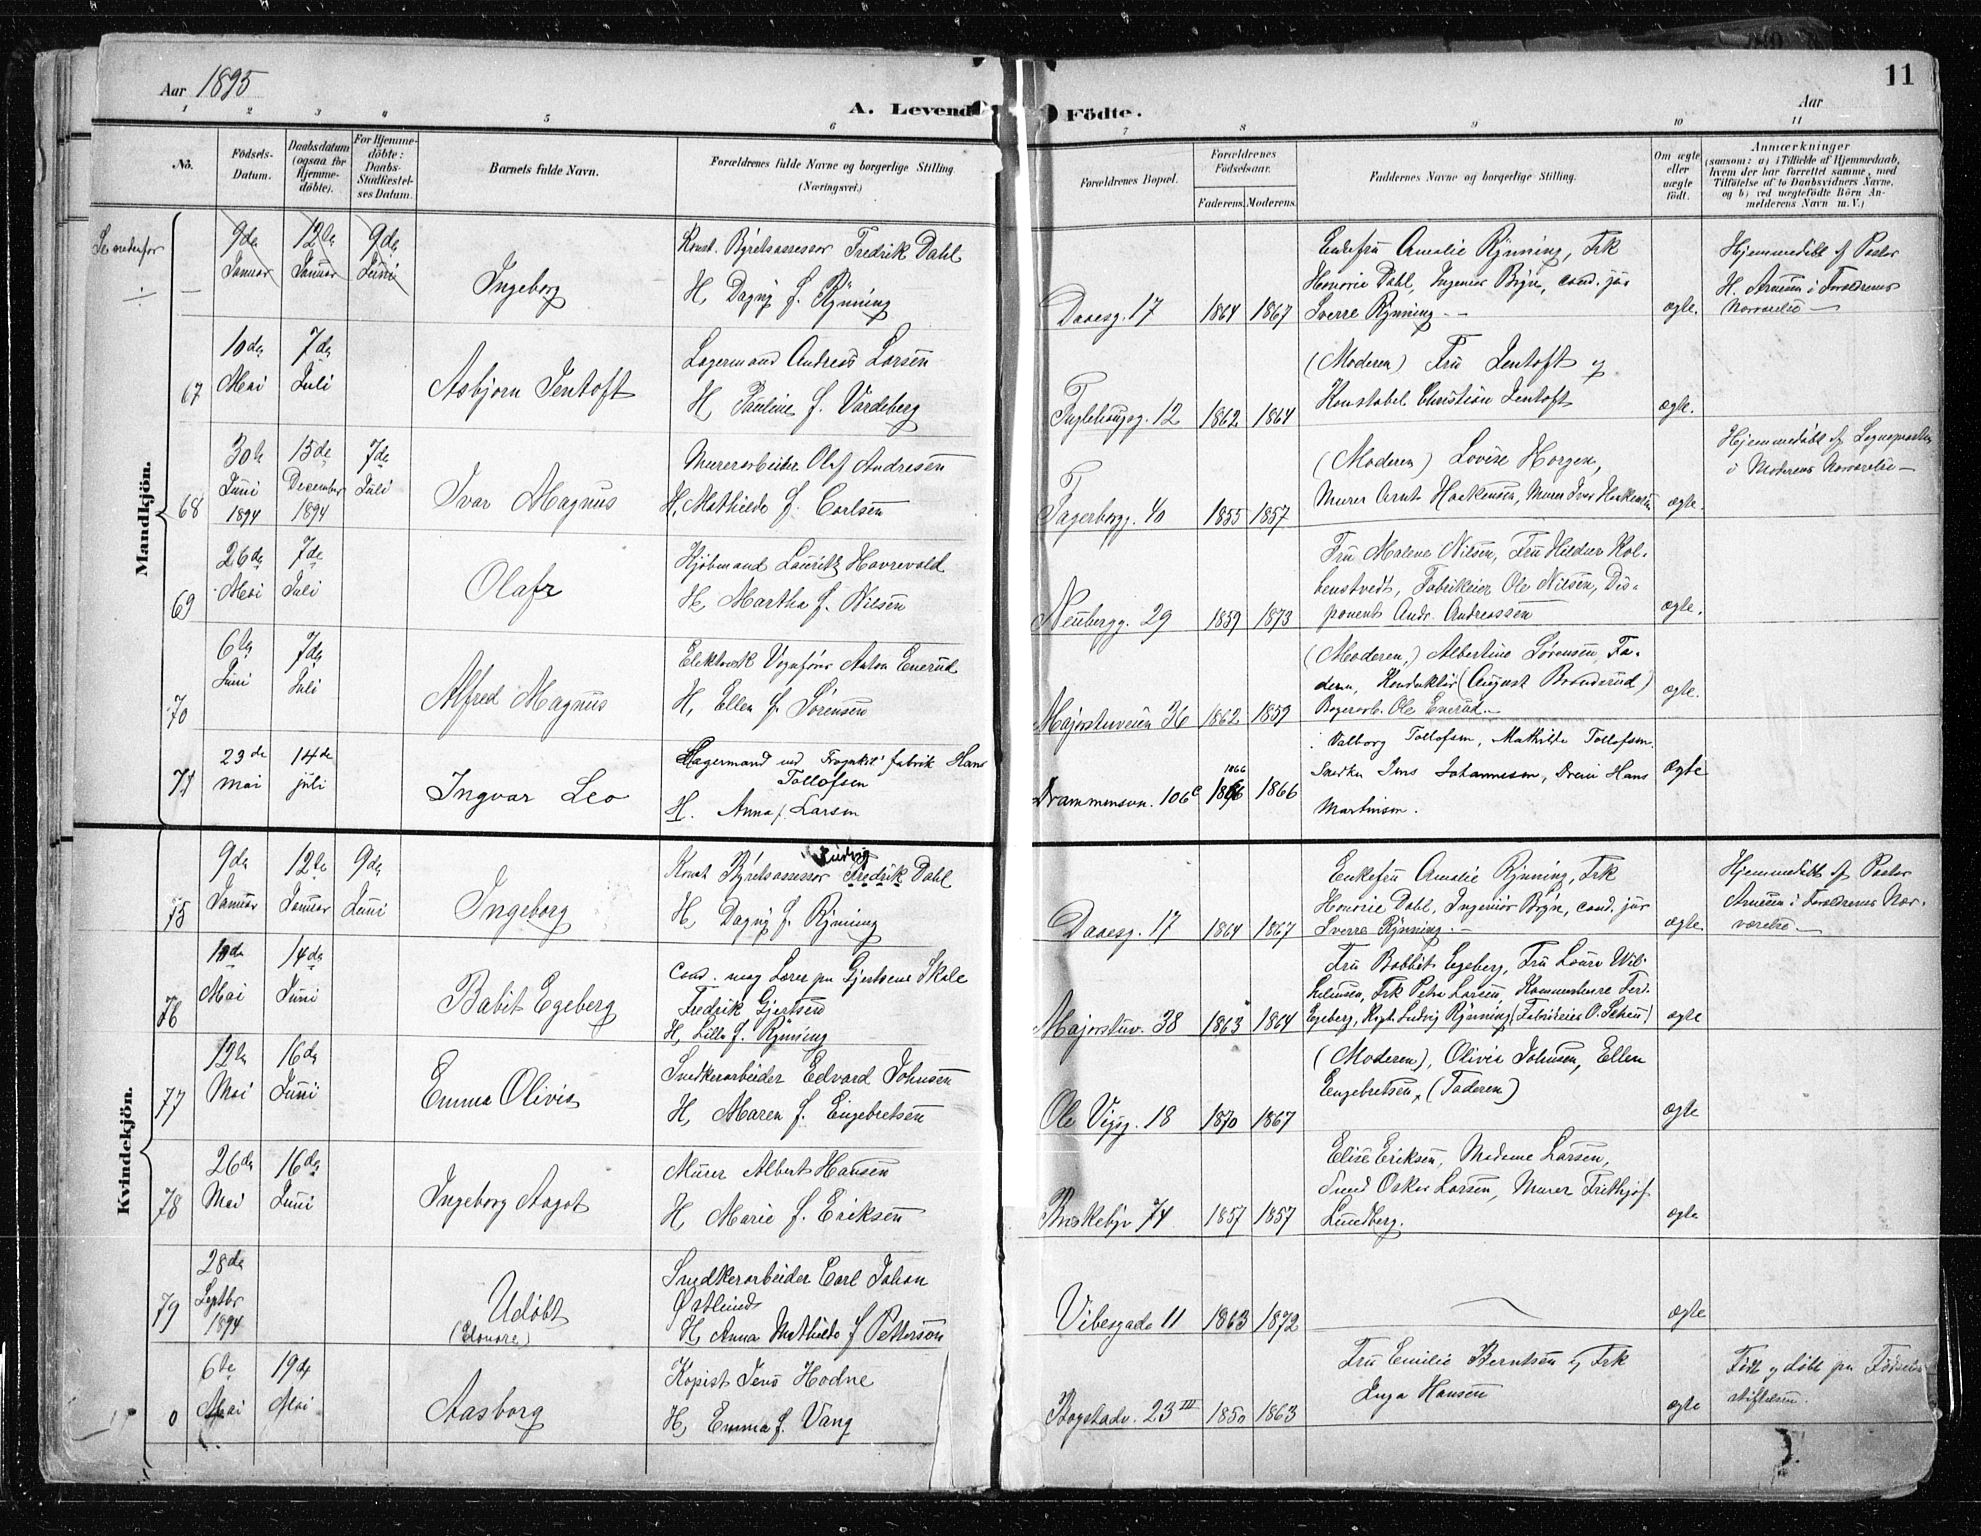 Aar 1895
A. Levende Födte.
Aar
11
1 2 3 4 5 6 7 8 9 10 11
No.
Födsels-
Datum.
Daabsdatum
(ogsaa for
Hjemme-
döbte).
For Hjemme-
döbte:
Daabs-
Stadfæstel-
ses Datum.
Barnets fulde Navn.
Forældrenes fulde Navne og borgerlige Stilling
(Næringsvei.)
Forældrenes Bopæl.
Forældrenes
Födselsaar.
Faderens. Moderens.
Faddernes Navne og borgerlige Stilling.
Om ægte
eller
uægte
födt.
Anmærkninger
(saasom: a) i Tilfælde af Hjemmedaab,
hvem der har forrettet samme, med
Tilföielse af to Daabsvidners Navne,
og b) ved uægtefödte Börn An-
melderens Navn m. V.)
Mandkjön.
Se nedenfor
9de Januar
12te Januar
9de Juni
Ingeborg
Konst. Byretsassessor Fredrik Dahl
H. Dagny f. Rynning
Daaesg. 17
1864 1867
Enkefru Amalie Rynning, Frk
Honorie Dahl, Ingeniør Bryn, cand. jur
Sverre Rynning
ægte.
Hjemmedøbt af Pastor
H. Arnesen i Forældrenes
Nærværelse
67
10de Mai
7de Juli
Asbjørn Jentoft
Lagermand Andreas Larsen
H. Pauline f. Vardeberg
Fuglehaugsg. 12
1862 1864
(Moderen) Fru Jentoft og
Konstabel Christian Jentoft
ægte.
68
30te Juni 1894
15de December 1894
7de Juli
Ivar Magnus
Murerarbeider Olaf Andresen
H. Mathilde f. Carlsen
Fagerborgg. 40
1855 1857
(Moderen) Lovise Horgen,
Murer Arnt Haakensen, Murer Ivar Haakensen
ægte.
Hjemmedøbt af Sognepresten
i Moderens Nærværelse
69
26de Mai
7de Juli
Olafr
Kjøbmand Lauritz Havrevold
H. Martha f. Nilsen
Neubergg. 29
1859 1873
Fru Malene Nilsen, Fru Hildur Kol-
benstvedt, Fabrikeier Ole Nilsen, Dis-
ponent Andr. Andreassen
ægte.
70
6te Juni
7de Juli
Alfred Magnus
Elektrisk Vognfører Anton Enerud
H. Ellen f. Sørensen
Majorstuveien 36
1862 1859
(Moderen,) Albertine Sørensen, Fa-
deren, Konduktør (August Branderud)
Bagerarb. Ole Enerud.
ægte.
71
23de mai
14de juli
Ingvar Leo
Lagermand ved Frognkil. fabrik Hans
Tollofsen
H. Anna f. Larsen
Drammensvn. 106c
1866
1866 1866
Valborg Tollofsen, Mathilde Tollofsen
Snedker Jens Johannesen, Dreier Hans
Martinsen.
ægte
Kvindekjön.
75
9de Januar
12te Januar
9de Juni
Ingeborg
Ludvig
Konst Byretsassessor Fredrik Dahl
H. Dagny f. Rynning
Daaesg. 17
1864 1867
Enkefru Amalie Rynning, Frk
Honorie Dahl, Ingeniør Bryn, cand. jur
Sverre Rynning.
ægte.
Hjemmedøbt af Pastor
Arnesen i Forældrenes Nær-
værelse
76
10de Mai
14de Juni
Babit Egeberg
Cand. mag Lærer paa Gjertsens Skole
Fredrik Gjertsen
H. Lilla f. Rynning
Majorstuv. 38
1863 1864
Fru Babbit Egeberg, Fru Laura Wil-
helmsen, Frk Petra Larsen, Kammerherre Ferd.
Egeberg, Kapt. Ludvig Rynning (Fabrikeier O. Scheu)
ægte
77
12te Mai
16de Juni
Emma Olivia
Snedkerarbeider Edvard Johnsen
H. Maren f. Engebretsen
Ole Vigsg. 18
1870 1867
(Moderen), Olivia Johnsen, Ellen
Engebretsen, (Faderen)
ægte
78
26de Mai
16de Juni
Ingeborg Aagot
Murer Albert Hansen
H. Marie f. Eriksen
Briskebyv 74
1857 1857
Elise Eriksen, Madame Larsen,
Smed Oskar Larsen, Murer Frithjof
Lundberg.
ægte
79
28de Septbr 1894
Udøbt
(Elonore)
Snedkerarbeider Carl Johan
Østlund
H. Anna Mathilde f Petterson
Vibesgade 11
1863 1872
ægte
0
6te Mai
19de Mai
Aasborg
Kopist Jens Hodne
H. Emma f. Vang
Bogstadv. 23 III
1850 1863
Fru Emilie Berntsen og Frk
Inga Hansen
ægte
Født og døbt paa Fødsels-
stiftelsen